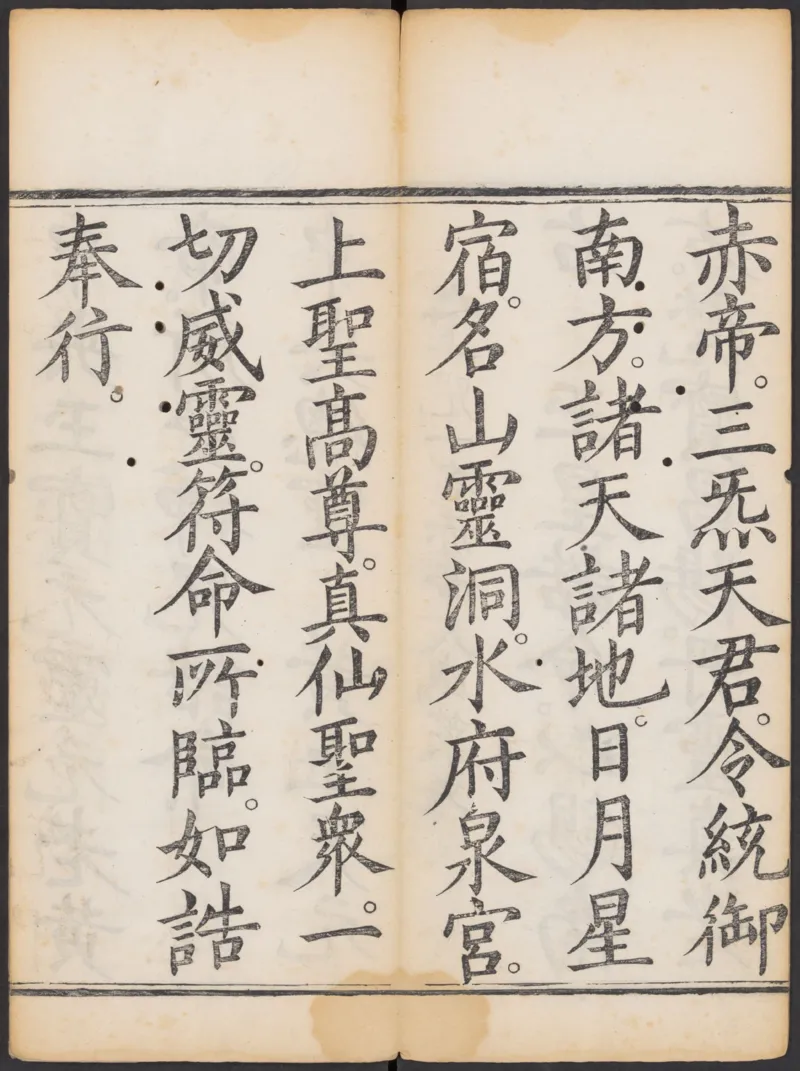 赤帝。三炁天君。令統御
南方。諸天諸地。日月星
宿。名山靈洞。水府泉宮。
上聖高尊。真仙聖眾。一
切威靈。符命所臨。如誥
奉行。